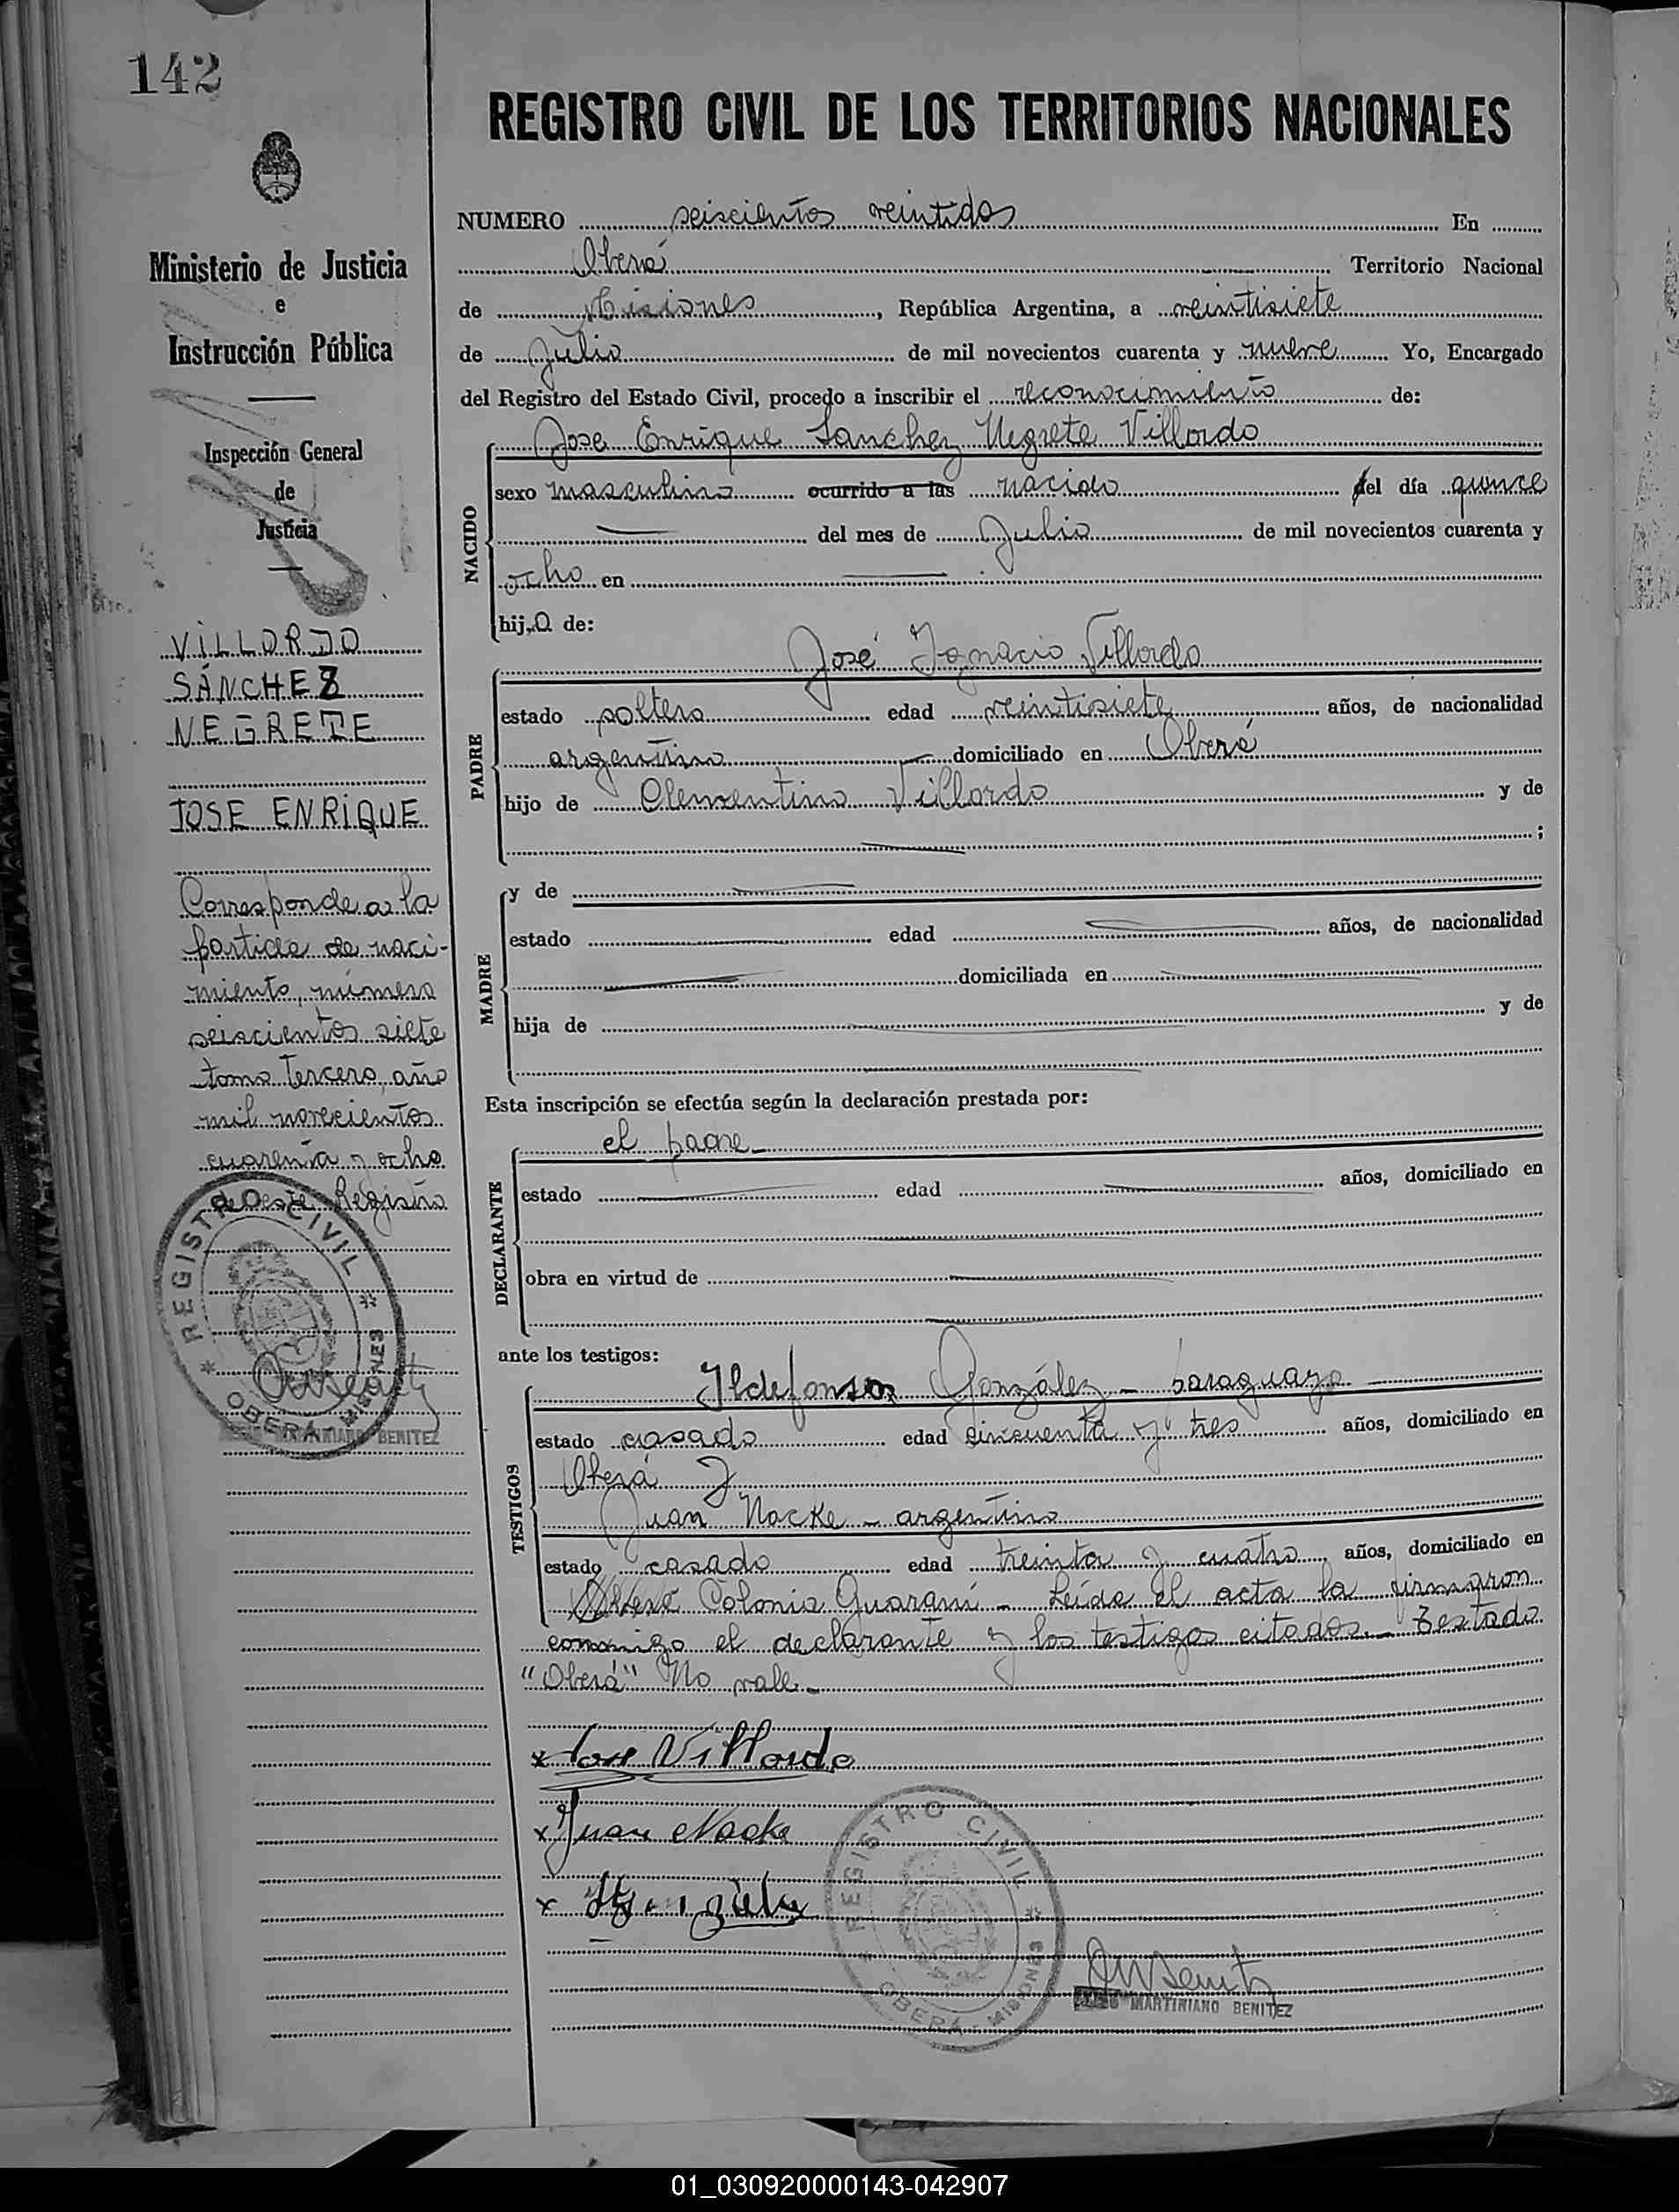 142
REGISTRO CIVIL DE LOS TERRITORIOS NACIONALES
Ministerio de Justicia
e
Instrucción Pública
Inspección General
de
Justicia
VILLORDO
SÁNCHEZ
NEGRETE
JOSE ENRIQUE
Corresponde a la
partida de naci-
miento, número
seiscientos siete
tomo tercero, año
mil novecientos
cuarenta y ocho
de este Registro
REGISTRO CIVIL
OBERÁ - MISIONES
MARTINIANO BENITEZ
NUMERO seiscientos veintidos En
Oberá Territorio Nacional
de Misiones, República Argentina, a veintisiete
de Julio de mil novecientos cuarenta y nueve Yo, Encargado
del Registro del Estado Civil, procedo a inscribir el reconocimiento de:
NACIDO
Jose Enrique Sanchez Negrete Villordo
sexo masculino ocurrido a las nacido del día quince
del mes de Julio de mil novecientos cuarenta y
ocho en
hijo de:
PADRE
José Ignacio Villordo
estado soltero edad veintisiete años, de nacionalidad
argentino domiciliado en Oberá
hijo de Clementino Villordo y de
;
MADRE
y de
estado edad años, de nacionalidad
domiciliada en
hija de y de
Esta inscripción se efectúa según la declaración prestada por:
DECLARANTE
el padre
estado edad años, domiciliado en
obra en virtud de
ante los testigos:
TESTIGOS
Ildefonso González - paraguayo
estado casado edad cincuenta y tres años, domiciliado en
Oberá y
Juan Nacke - argentino
estado casado edad treinta y cuatro años, domiciliado en
Oberá Colonia Guaraní - Leída el acta la firmaron
conmigo el declarante y los testigos citados. - Testado
"Oberá" No vale -
x Jose Villordo
x Juan Nacke
x
REGISTRO CIVIL
OBERÁ - MISIONES
MARTINIANO BENITEZ
01_030920000143-042907